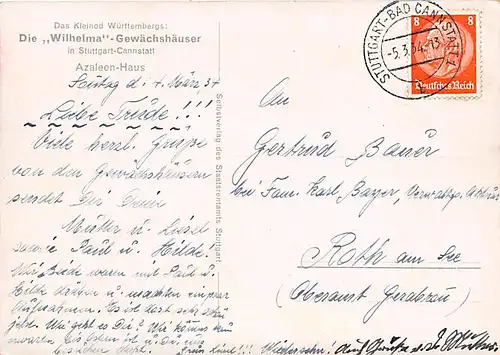 Das Kleinod Württembergs:
Die „Wilhelma"-Gewächshäuser
in Stuttgart-Cannstatt
Azaleen-Haus
Sontag d. 4. März 34
Liebe Trude!!!
Viele herzl. Grüße
von den Gewächshäusern
sendet Dir Deine
Mutter u. Liesel
sowie Paul u. Hilde!
Wir Beide waren mit Paul u.
Hilde draußen u. machten ein paar
Aufnahmen. Es ist dort sehr schön
Wie geht es Dir?
Selbstverlag des Staatsrentamts Stuttgart
STUTTGART-BAD CANNSTATT 1
-5.3.34.-13
8 8
Deutsches Reich
An
Gertrud Bauer
bei Fam. Karl Bayer,
Roth am See
(Oberamt Gerabronn)
Wiedersehn!